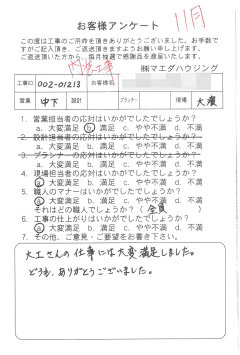 お客様アンケート
11月
この度は工事のご用命を頂きありがとうございました。お手数で
すがご記入頂き、ご返送頂きますようお願い申し上げます。
ご返送頂いた方から、毎月抽選で感謝品を進呈いたします。
内装工事
㈱マエダハウジング
工事ID 002-01213 お客様名
営業 中下 設計 プランナー 現場 大慶
1. 営業担当者の応対はいかがでしたでしょうか?
a. 大変満足 b. 満足 c. やや不満 d. 不満
2. 設計担当者の応対はいかがでしたでしょうか?
a. 大変満足 b. 満足 c. やや不満 d. 不満
3. プランナーの応対はいかがでしたでしょうか?
a. 大変満足 b. 満足 c. やや不満 d. 不満
4. 現場担当者の応対はいかがでしたでしょうか?
a. 大変満足 b. 満足 c. やや不満 d. 不満
5. 職人のマナーはいかがでしたでしょうか?
a. 大変満足 b. 満足 c. やや不満 d. 不満
それはどの職人でしょうか?( 全員 )
6. 工事の仕上がりはいかがでしたでしょうか?
a. 大変満足 b. 満足 c. やや不満 d. 不満
7. その他、ご意見・ご要望をお書き下さい。
大工さんの仕事には大変満足しました。
どうも、ありがとうございました。